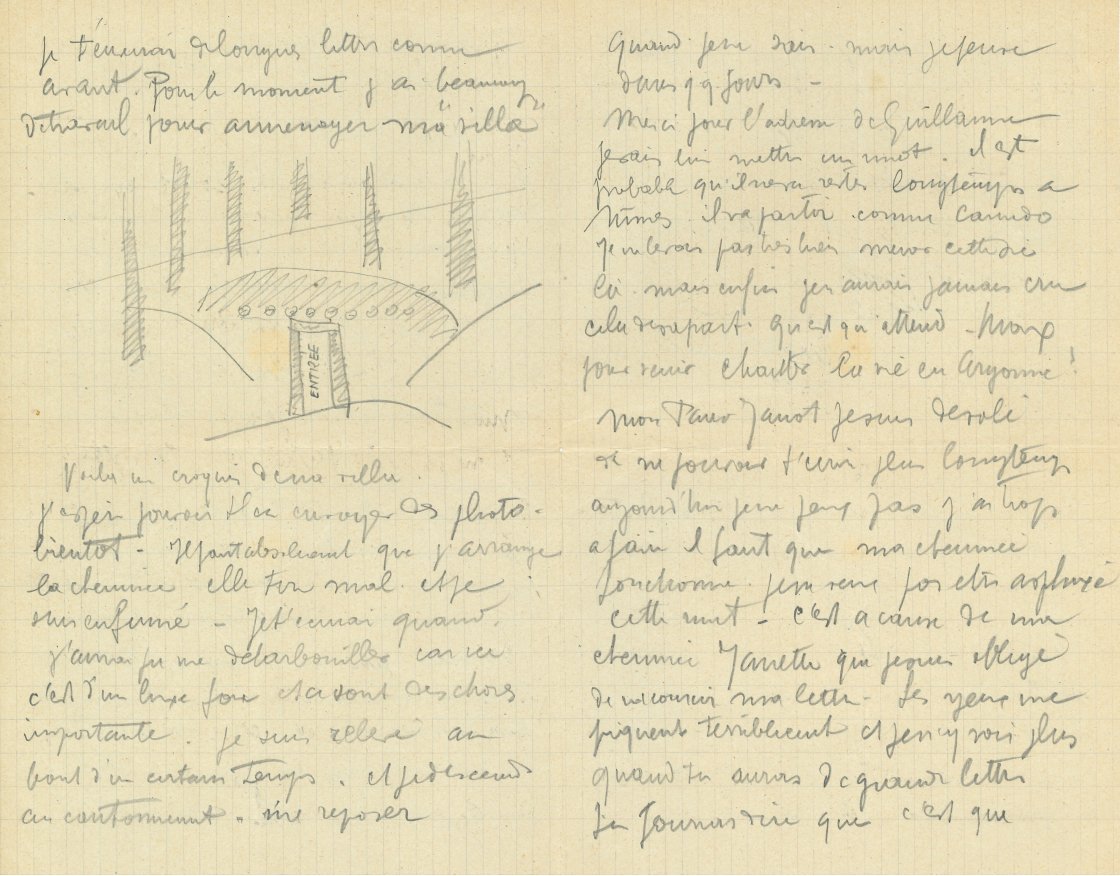 je t'écrirai de longues lettres comme
avant. Pour le moment j ai beaucoup
de travail pour amménager ma "villa"
ENTREE
Voilà un croquis de ma villa.
j'espère pouvoir t'en envoyer des photo-
bientot - Il faut absolument que j'arrange
la cheminée elle tire mal et je
suis enfumé - Je t'écrirai quand
j'aurai pu me débarbouiller car ici
c'est d'un luxe fou et ce sont des choses
importante. je suis relevé au
bout d'un certain temps. et je descends
au cantonnement. me reposer
Quand je ne sais. mais je pense
dans qq jours -
Merci pour l'adresse de Guillaume
je vais lui mettre un mot. il est
probable qu'il ne va rester longtemps a
Nîmes. il va partir comme Canudo
je ne le vois pas très bien mener cette vie
là. mais enfin je n aurais jamais cru
celui de sa part. qu est qu'attend - Max
pour venir chanter la vie en Argonne!
mon Jeanot je suis désolé
de ne pouvoir t'écrire plus longtemps
aujourd'hui je ne peux pas j'ai trop
a faire il faut que ma cheminée
fonctionne je ne veux pas etre asphyxié
cette nuit - c'est a cause de ma
cheminée Janette que je suis obligé
de raccourcir ma lettre - Les yeux me
piquent terriblement et je n'y vois plus
quand tu auras de grande lettre
tu pourras dire que c'est que